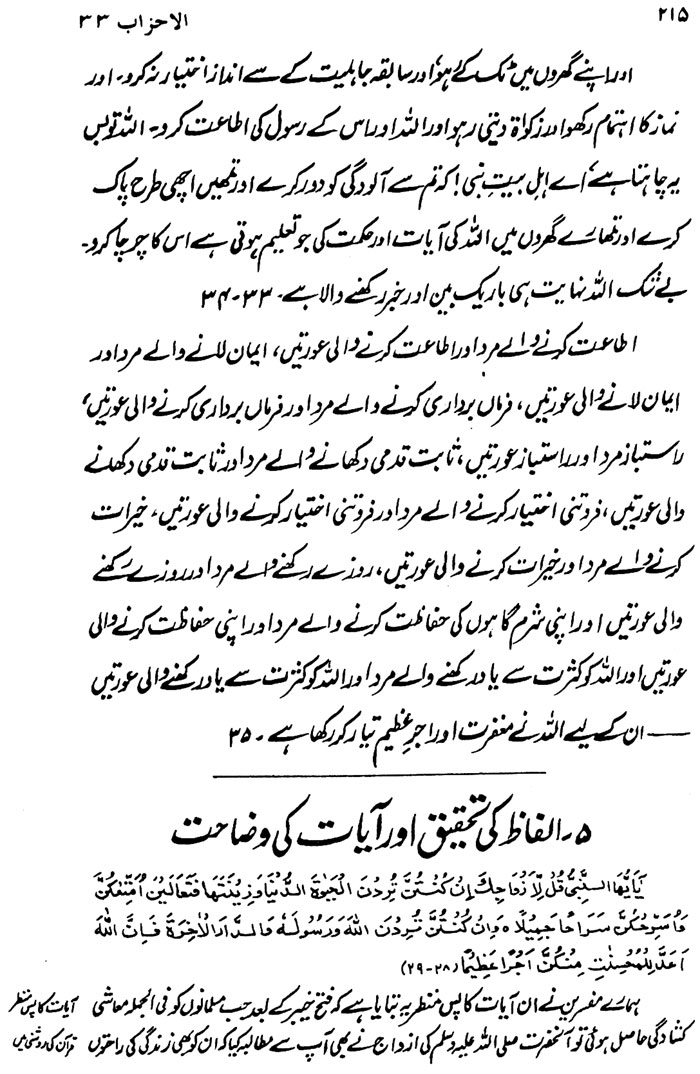 ۲۱۵
الاحزاب ۳۳
اور اپنے گھروں میں ٹک کے رہو اور سابقہ جاہلیت کے سے انداز اختیار نہ کرو۔ اور
نماز کا اہتمام رکھو اور زکوٰۃ دیتی رہو اور اللہ اور اس کے رسول کی اطاعت کرو۔ اللہ تو بس
یہ چاہتا ہے، اے اہلِ بیتِ نبی! کہ تم سے آلودگی کو دور کرے اور تمھیں اچھی طرح پاک
کرے اور تمھارے گھروں میں اللہ کی آیات اور حکمت کی جو تعلیم ہوتی ہے اس کا چرچا کرو۔
بے شک اللہ نہایت ہی باریک بین اور خبر رکھنے والا ہے۔ ۳۳-۳۴
اطاعت کرنے والے مرد اور اطاعت کرنے والی عورتیں، ایمان لانے والے مرد اور
ایمان لانے والی عورتیں، فرماں برداری کرنے والے مرد اور فرماں برداری کرنے والی عورتیں،
راستباز مرد اور راستباز عورتیں، ثابت قدمی دکھانے والے مرد اور ثابت قدمی دکھلانے
والی عورتیں، فروتنی اختیار کرنے والے مرد اور فروتنی اختیار کرنے والی عورتیں، خیرات
کرنے والے مرد اور خیرات کرنے والی عورتیں، روزے رکھنے والے مرد اور روزے رکھنے
والی عورتیں اور اپنی شرم گاہوں کی حفاظت کرنے والے مرد اور اپنی حفاظت کرنے والی
عورتیں اور اللہ کو کثرت سے یاد رکھنے والے مرد اور اللہ کو کثرت سے یاد رکھنے والی عورتیں
— ان کے لیے اللہ نے مغفرت اور اجرِ عظیم تیار کر رکھا ہے۔ ۳۵
۵۔ الفاظ کی تحقیق اور آیات کی وضاحت
يٰٓاَيُّهَا النَّبِىُّ قُلْ لِّاَزْوَاجِكَ اِنْ كُنْتُنَّ تُرِدْنَ الْحَيٰوةَ الدُّنْيَا وَزِيْنَتَهَا فَتَعَالَيْنَ اُمَتِّعْكُنَّ
وَاُسَرِّحْكُنَّ سَرَاحًا جَمِيْلًا ۝ وَاِنْ كُنْتُنَّ تُرِدْنَ اللّٰهَ وَرَسُوْلَهٗ وَالدَّارَ الْاٰخِرَةَ فَاِنَّ اللّٰهَ
اَعَدَّ لِلْمُحْسِنٰتِ مِنْكُنَّ اَجْرًا عَظِيْمًا (۲۸-۲۹)
ہمارے مفسرین نے ان آیات کا پس منظر یہ بتایا ہے کہ فتح خیبر کے بعد جب مسلمانوں کو فی الجملہ معاشی
آیات کا پس منظر
کشادگی حاصل ہوئی تو آنحضرت صلی اللہ علیہ وسلم کی ازواج نے بھی آپ سے مطالبہ کیا کہ ان کو بھی زندگی کی راحتوں
قرآن کی روشنی میں